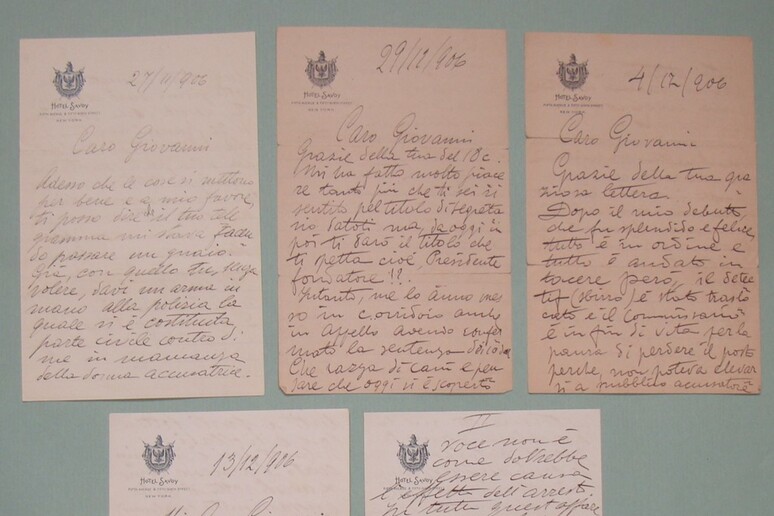 HOTEL SAVOY
FIFTH AVENUE & FIFTY-NINTH STREET
NEW YORK
27/11/906
Caro Giovanni
Adesso che le cose si mettono
per bene e a mio favore,
ti posso dire il tuo tele
gramma mi stava facen
do passare un guaio:
Già, con quello tu, senza
volere, davi un arma in
mano alla polisia la
quale si è costituita
parte civile contro di
me in mancanza
della donna accusatrice.
HOTEL SAVOY
FIFTH AVENUE & FIFTY-NINTH STREET
NEW YORK
29/12/906
Caro Giovanni
Grazie della tua del 10 c.
Mi ha fatto molto piace
re tanto più che ti sei ri
sentito pel titolo di segreta
rio datoti ma, da oggi in
poi ti darò il titolo che
ti spetta cioè, Presidente
fondatore!!
Intanto, me lo ànno mes
so in c. orridoio anche
in Appello avendo confer
mato la sentenza
Che razza di cani e pen
sare che oggi si è scoperto
HOTEL SAVOY
FIFTH AVENUE & FIFTY-NINTH STREET
NEW YORK
4/12/906
Caro Giovanni
Grazie della tua gra
ziosa lettera.
Dopo il mio debutto,
che fu splendido e felice,
tutto è in ordine e
tutto è andato in
tacere però, il detec
tif (sbirro) è stato traslo
cato e il commissario
è in fin di vita per la
paura di perdere il posto
perche, non poteva elevar
si a pubblico accusatore
HOTEL SAVOY
FIFTH AVENUE & FIFTY-NINTH STREET
NEW YORK
13/12/906
Giovanni
HOTEL SAVOY
NEW YORK
II
voce non è
come dovrebbe
essere causa
l'effetto dell'arresto.
In tutto quest'affare